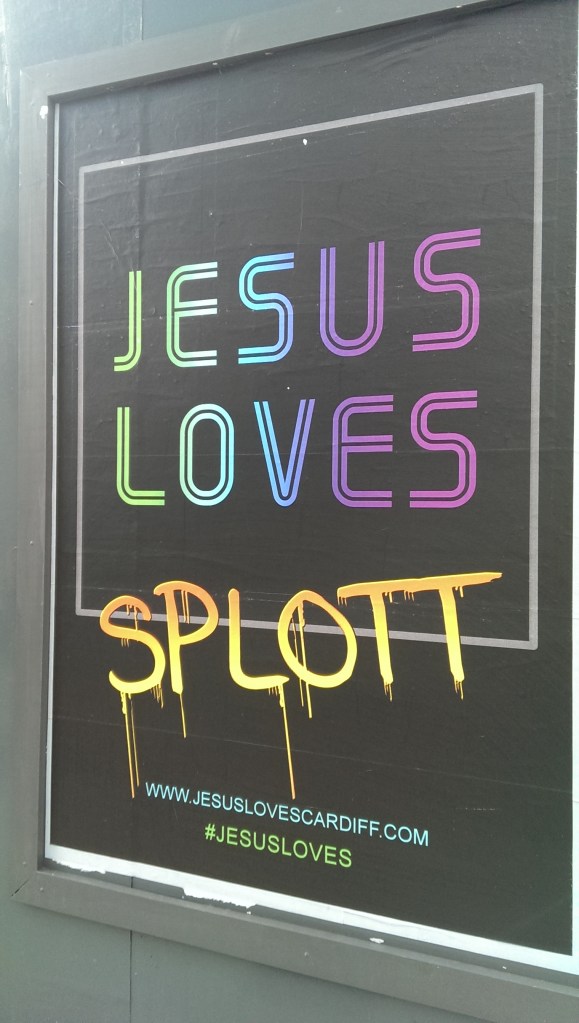 JESUS
LOVES
SPLOTT
WWW.JESUSLOVESCARDIFF.COM
#JESUSLOVES